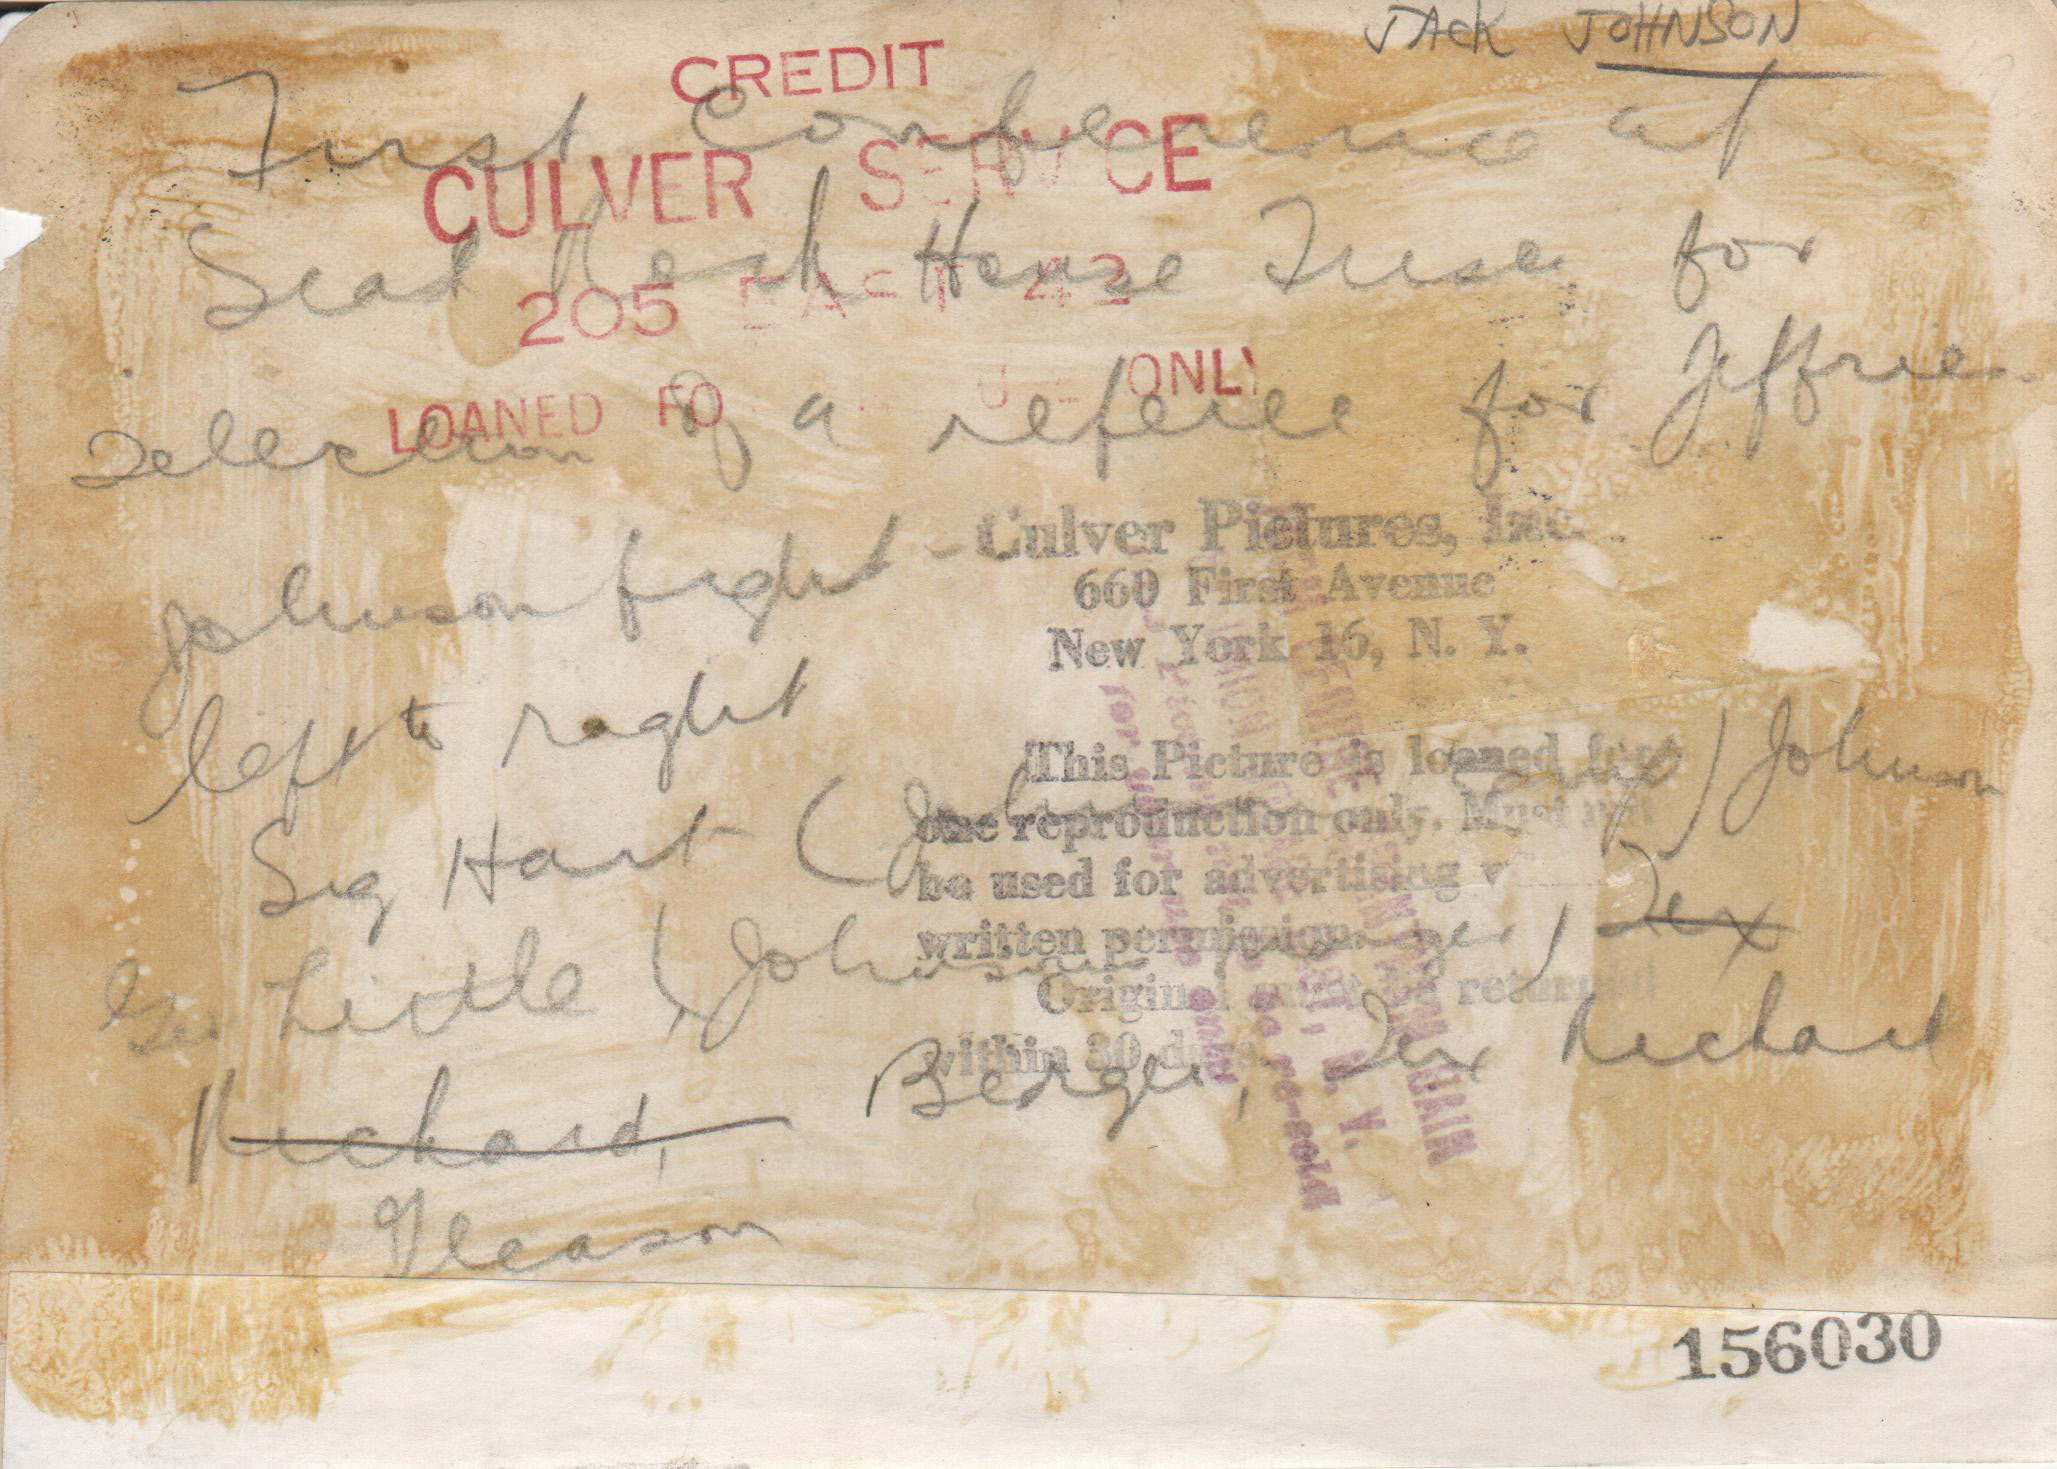 JACK JOHNSON
CREDIT
CULVER SERVICE
205 EAST 42
LOANED FO ONLY
First Conference at
Seal Rock House for
Selection of a referee for Jeffries
Johnson fight -
left to right
Sig Hart (Johnson Camp) Johnson
Geo Little (Johnson manager) Tex
Richard, Berger, Tex Richard
Gleason
Culver Pictures, Inc.
660 First Avenue
New York 16, N. Y.
This Picture is loaned for
one reproduction only. Must not
be used for advertising
written permission.
Original must be returned
within 30 days.
for your use only
be re-sold
156030